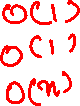 O(1)
O(1)
O(n)